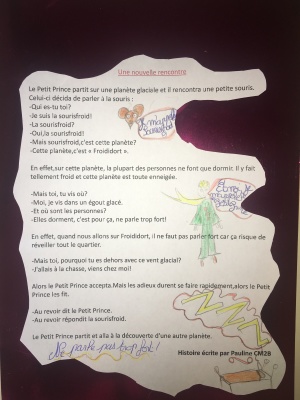 Une nouvelle rencontre
Le Petit Prince partit sur une planète glaciele et il rencontra une petite souris.
Celui-ci décida de parler à la souris :
-Qui es-tu toi?
-Je suis la sourisfroid!
-La sourisfroid?
-Oui,la sourisfroid!
-Mais sourisfroid,c'est cette planète?
-Cette planète,c'est « Froididort ».
En effet,sur cette planète, la plupart des personnes ne font que dormir. Il y fait
tellement froid et cette planète est toute enneigée.
-Mais toi, tu vis où?
-Moi, je vis dans un égout glacé.
-Et où sont les personnes?
-Elles dorment, c'est pour ça, ne parle trop fort!
En effet, quand nous allons sur Froididort, il ne faut pas parler fort car ça risque de
réveiller tout le quartier.
-Mais toi, pourquoi tu es dehors avec ce vent glacial?
-J'allais à la chasse, viens chez moi!
Alors le Petit Prince accepta.Mais les adieux durent se faire rapidement,alors le Petit
Prince les fit.
-Au revoir dit le Petit Prince.
-Au revoir répondit la sourisfroid.
Le Petit Prince partit et alla à la découverte d'une autre planète.
Ne parle pas trop fort!
Histoire écrite par Pauline CM2B